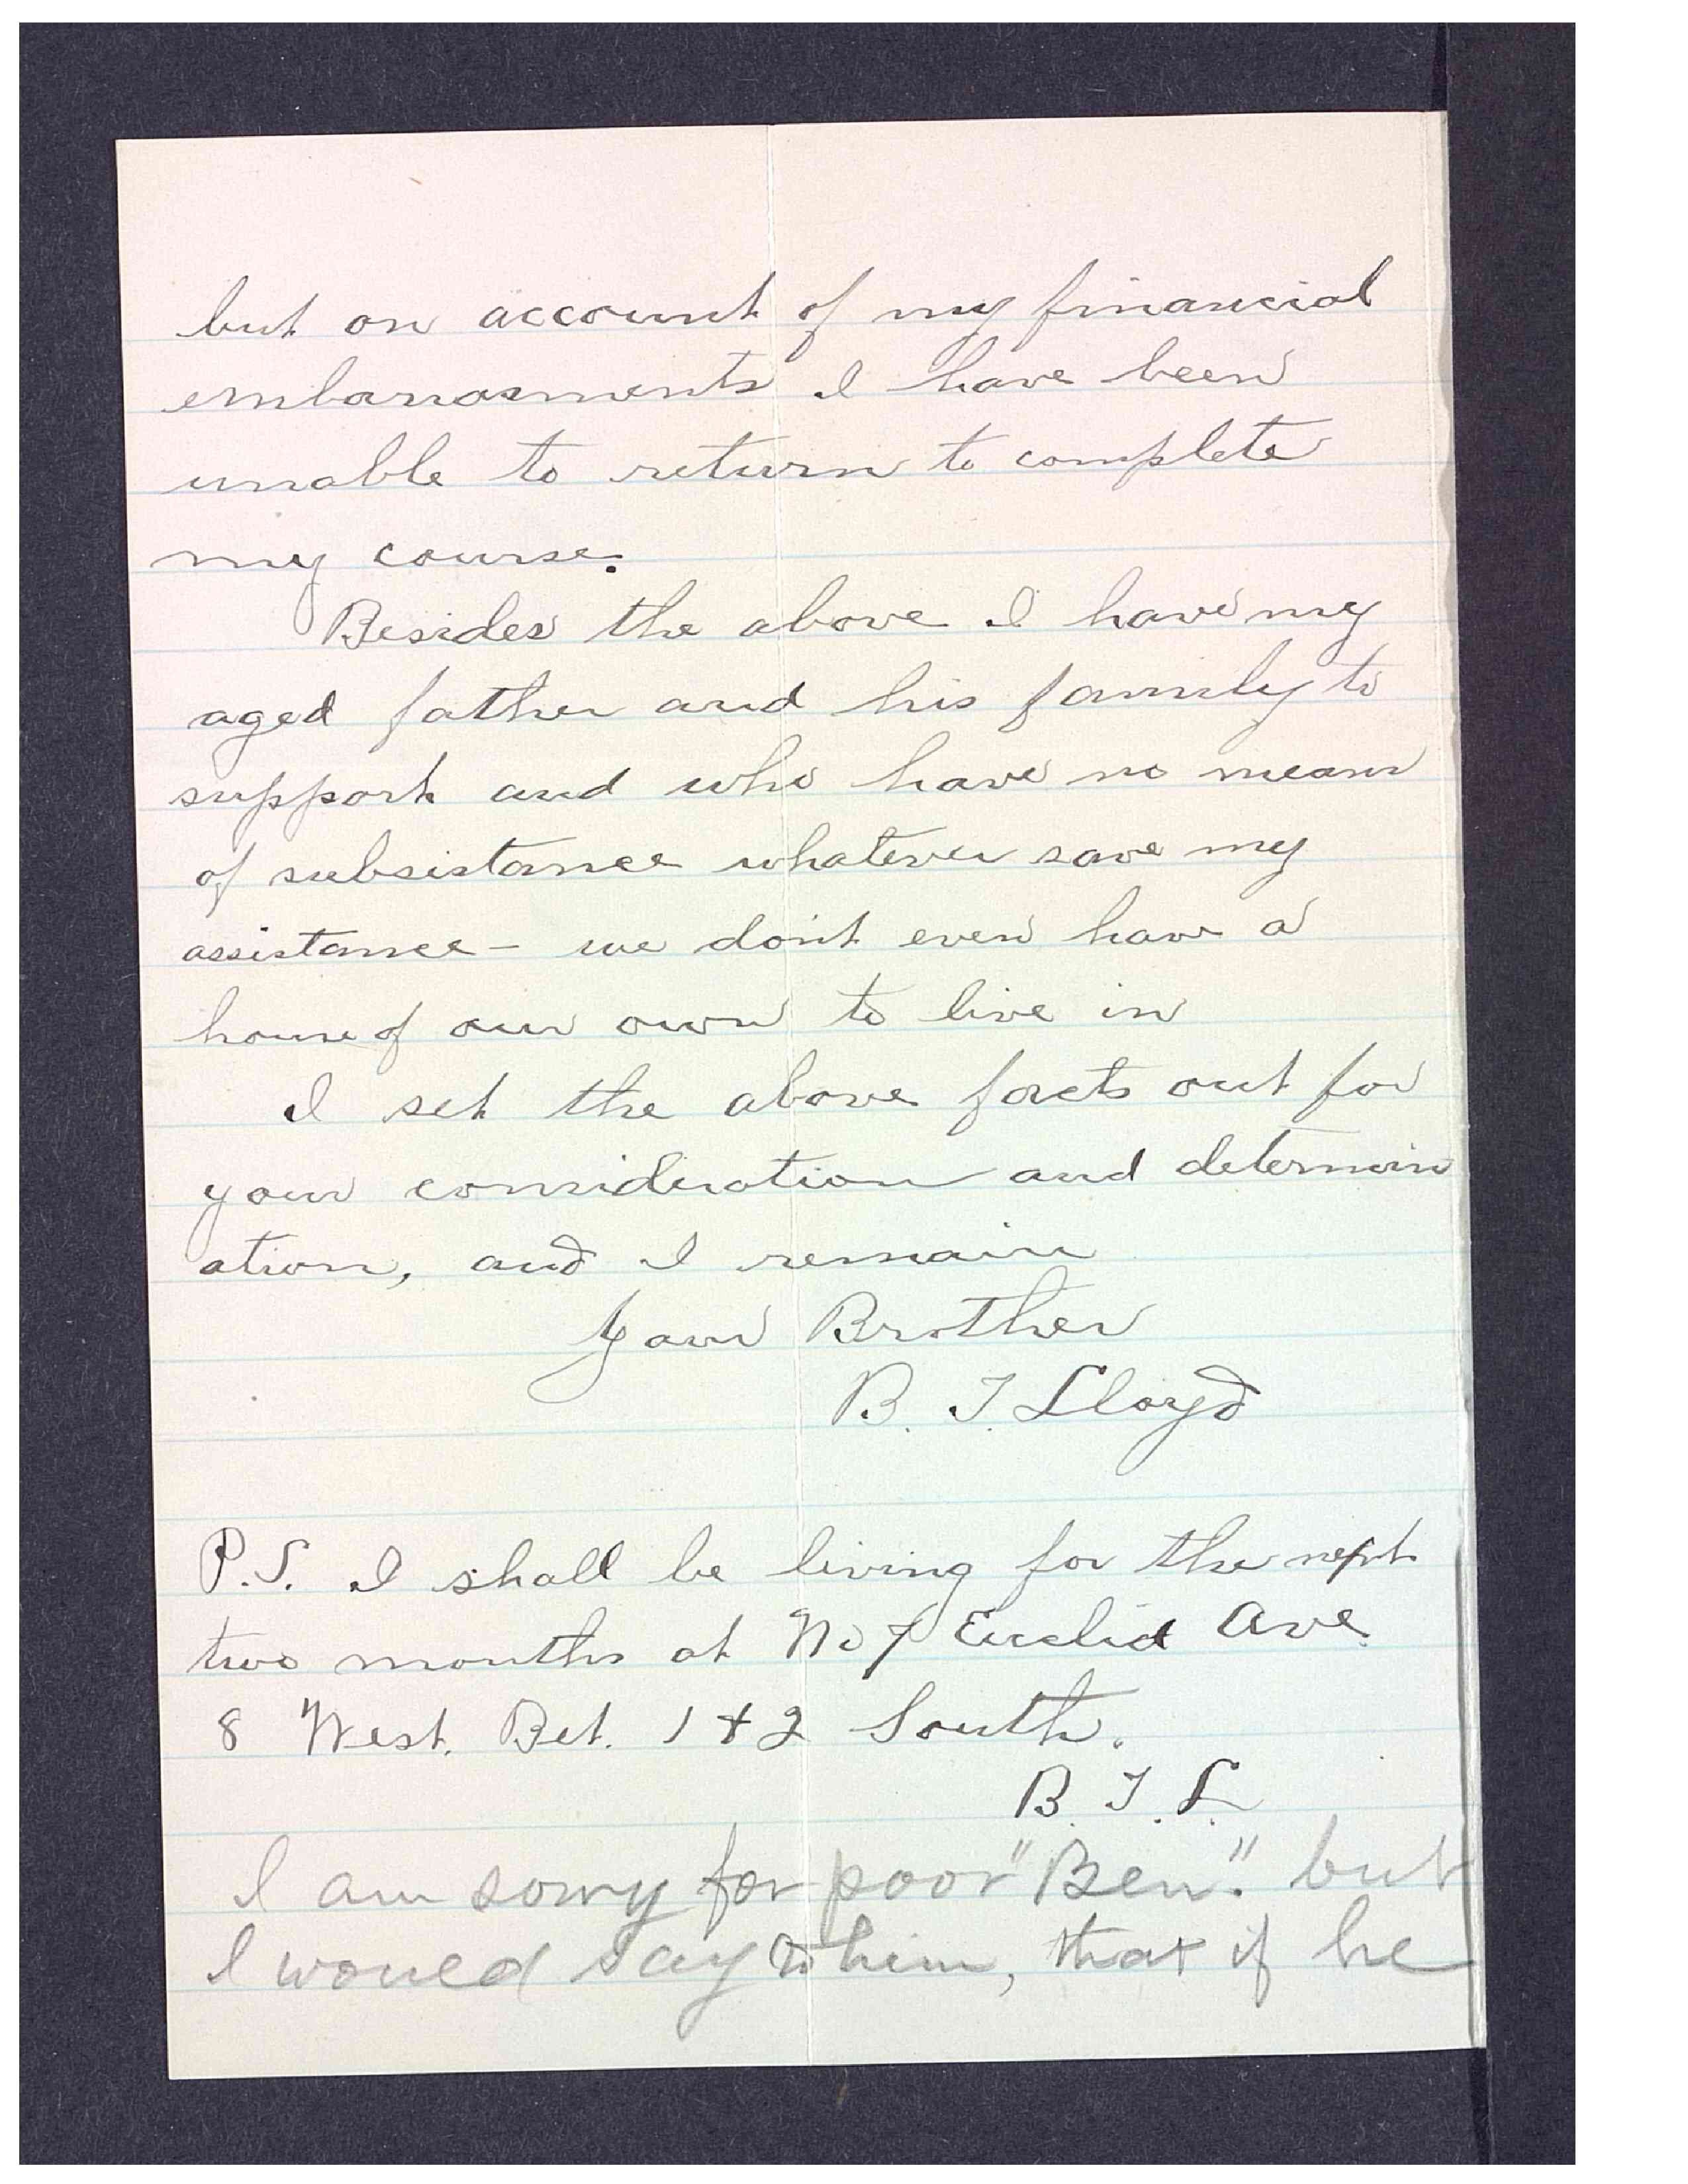 but on account of my financial
embarrasments I have been
unable to return to complete
my course.
Besides the above I have my
aged father and his family to
support and who have no means
of subsistance whatever save my
assistance - we don't even have a
house of our own to live in
I set the above facts out for
your consideration and determin
ation, and I remain
Your Brother
B. T. Lloyd
P.S. I shall be living for the next
two months at No 7 Euclid Ave.
8 West. Bet. 1 & 2 South.
B. T. L.
I am sorry for poor "Ben". but
I would say to him, that if he